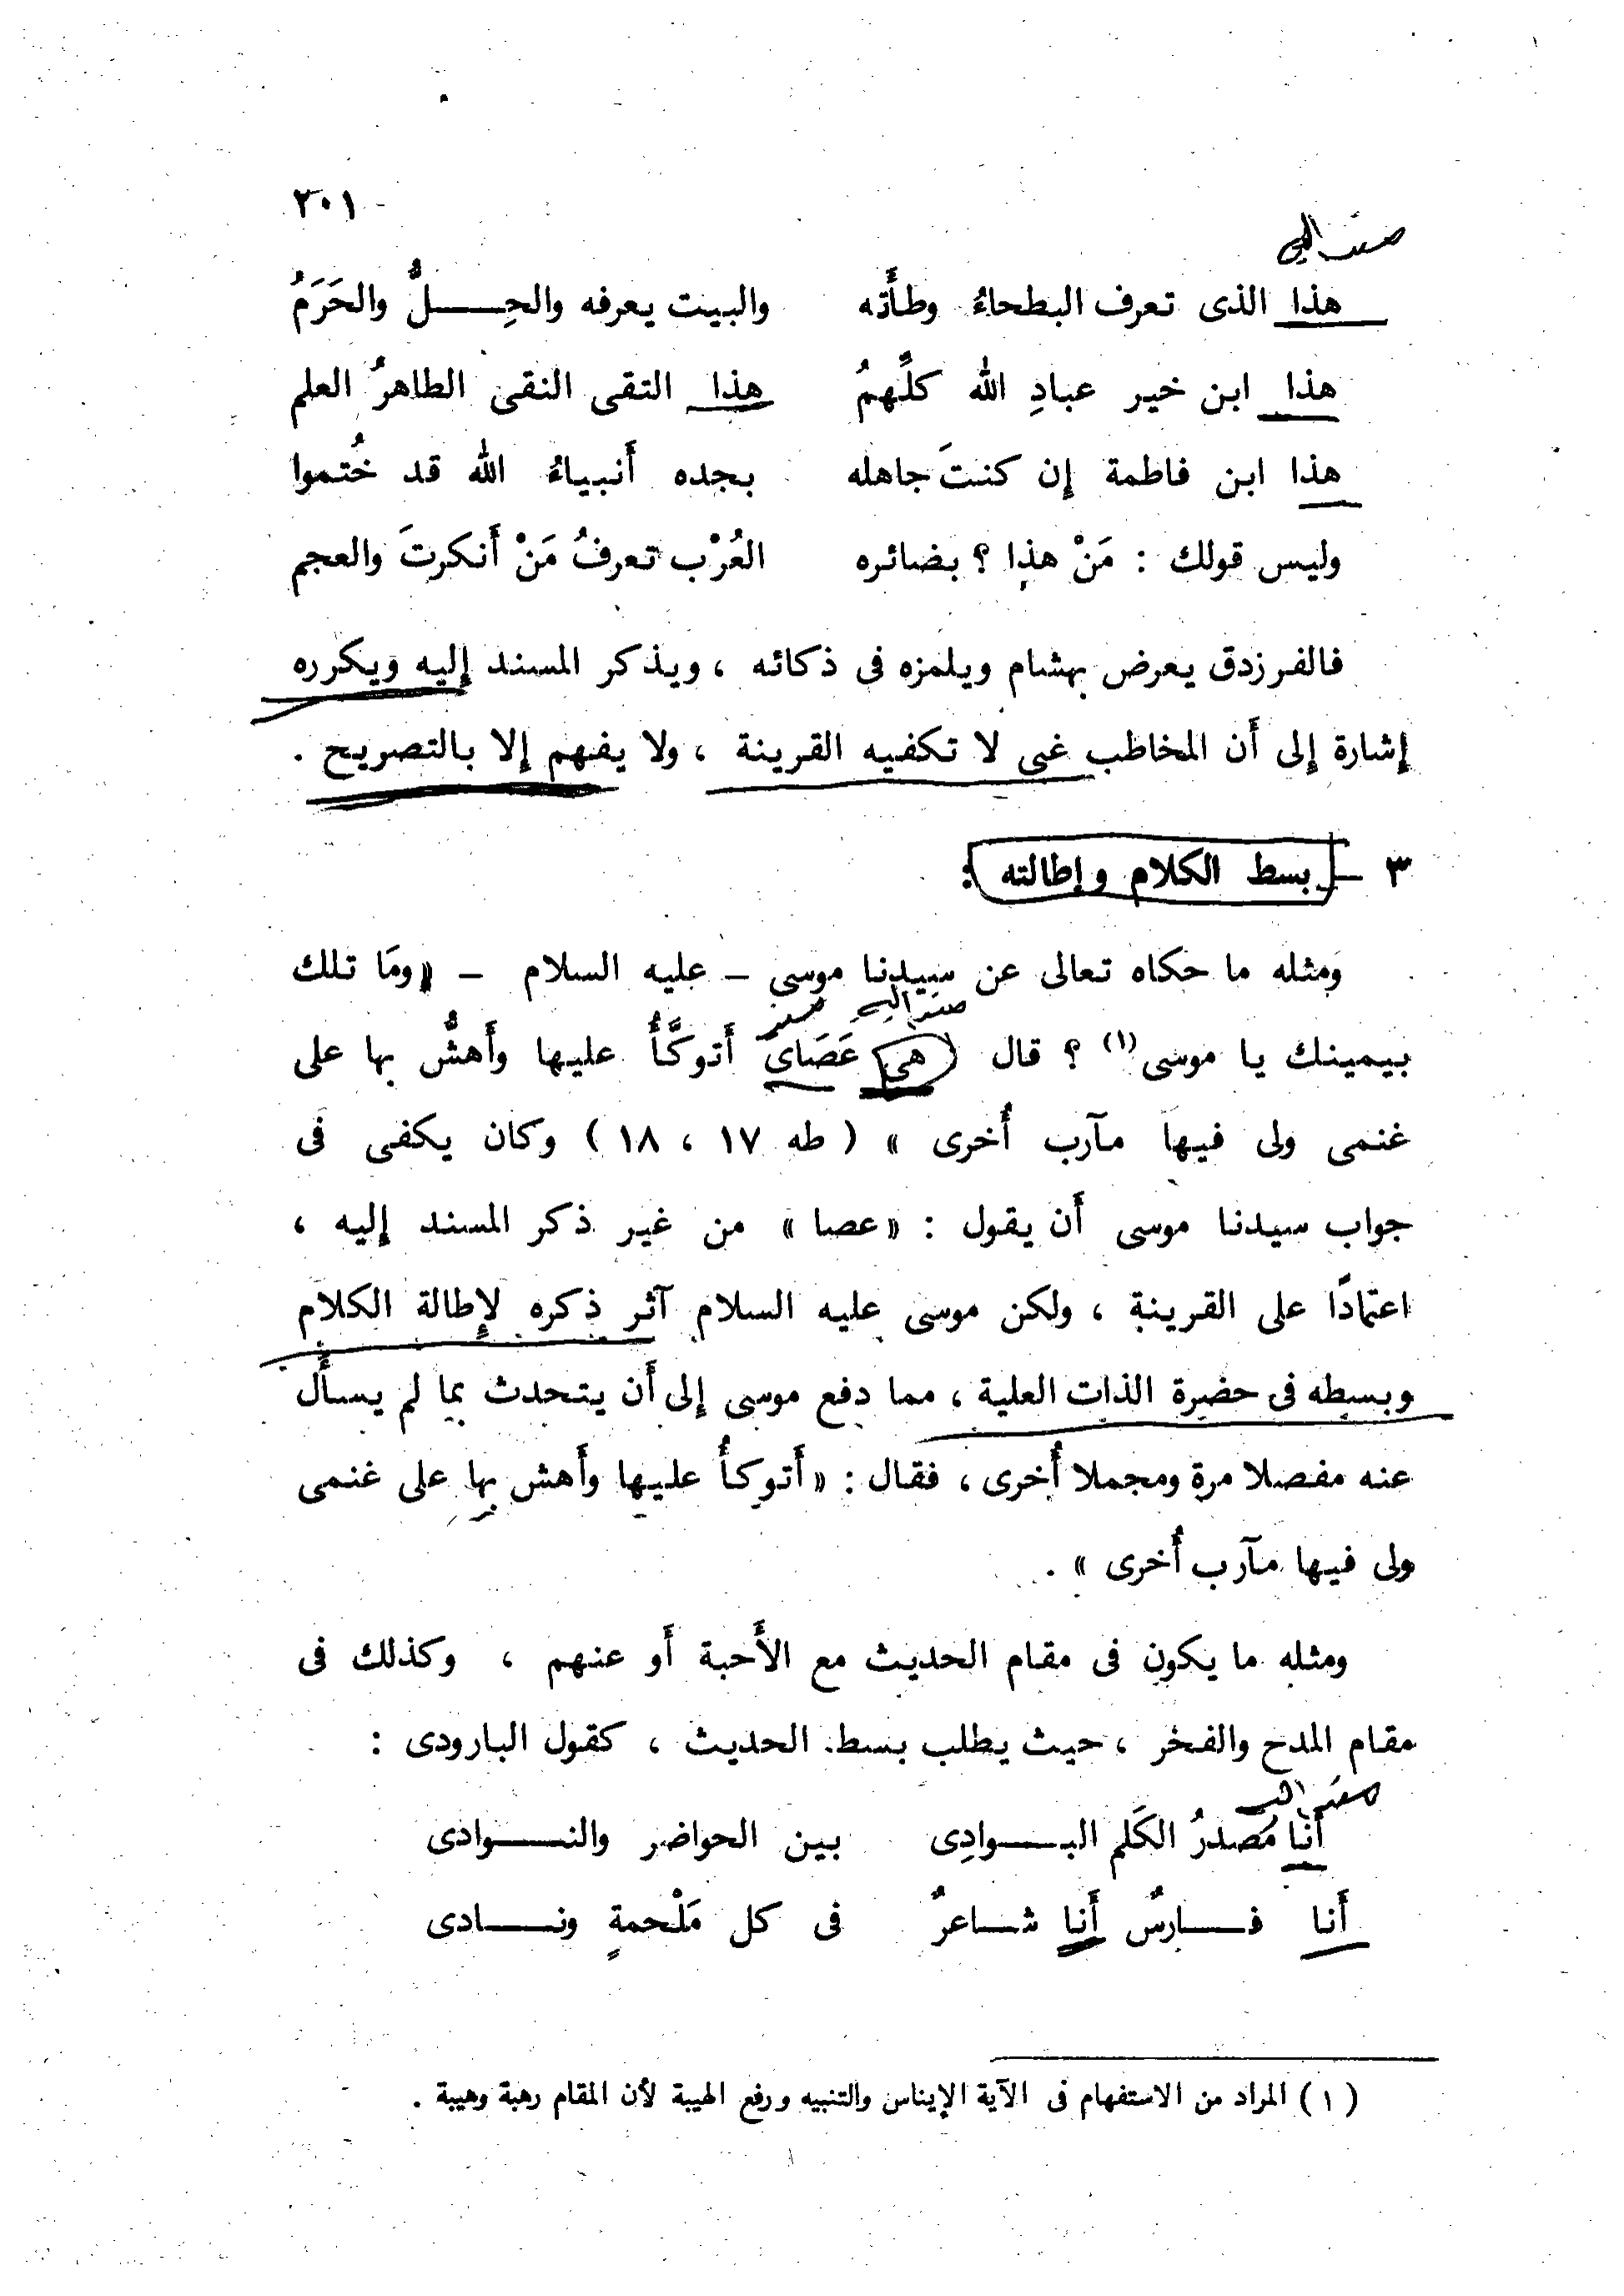 ٢٠١
مسند إليه
هذا الذى تعرف البطحاءُ وطأَته والبيت يعرفه والحِـلُّ والحَرَمُ
هذا ابن خير عبادِ الله كلِّهمُ هذا التقى النقى الطاهرُ العلم
هذا ابن فاطمة إن كنتَ جاهله بجده أَنبياءُ الله قد خُتموا
وليس قولك : مَنْ هذا ؟ بضائره العُرْب تعرفُ مَنْ أَنكرتَ والعجم
فالفرزدق يعرض بهشام ويلمزه فى ذكائه ، ويذكر المسند إليه ويكرره
إشارة إلى أن المخاطب غبى لا تكفيه القرينة ، ولا يفهم إلا بالتصريح .
٣ – بسط الكلام وإطالته :
ومثله ما حكاه تعالى عن سيدنا موسى – عليه السلام – « ومَا تلك
مسند إليه مسند
بيمينك يا موسى(١) ؟ قال هى عَصَاىَ أَتوكَّأُ عليها وأَهشُّ بها على
غنمى ولى فيها مآرب أُخرى » ( طه ١٧ ، ١٨ ) وكان يكفى فى
جواب سيدنا موسى أَن يقول : « عصا » من غير ذكر المسند إليه ،
اعتمادًا على القرينة ، ولكن موسى عليه السلام آثر ذكره لإِطالة الكلام
وبسطه فى حضرة الذات العلية ، مما دفع موسى إلى أَن يتحدث بما لم يسأَل
عنه مفصلا مرة ومجملا أُخرى ، فقال : « أَتوكأُ عليها وأَهش بها على غنمى
ولى فيها مآرب أُخرى » .
ومثله ما يكون فى مقام الحديث مع الأَحبة أَو عنهم ، وكذلك فى
مقام المدح والفخر ، حيث يطلب بسط الحديث ، كقول البارودى :
مسند إليه
أَنا مَصدرُ الكَلم البـوادِى بين الحواضر والنـوادى
أَنا فـارسٌ أَنا شـاعرٌ فى كل مَلْحمةٍ ونـادى
( ١ ) المراد من الاستفهام فى الآية الإيناس والتنبيه ورفع الهيبة لأن المقام رهبة وهيبة .